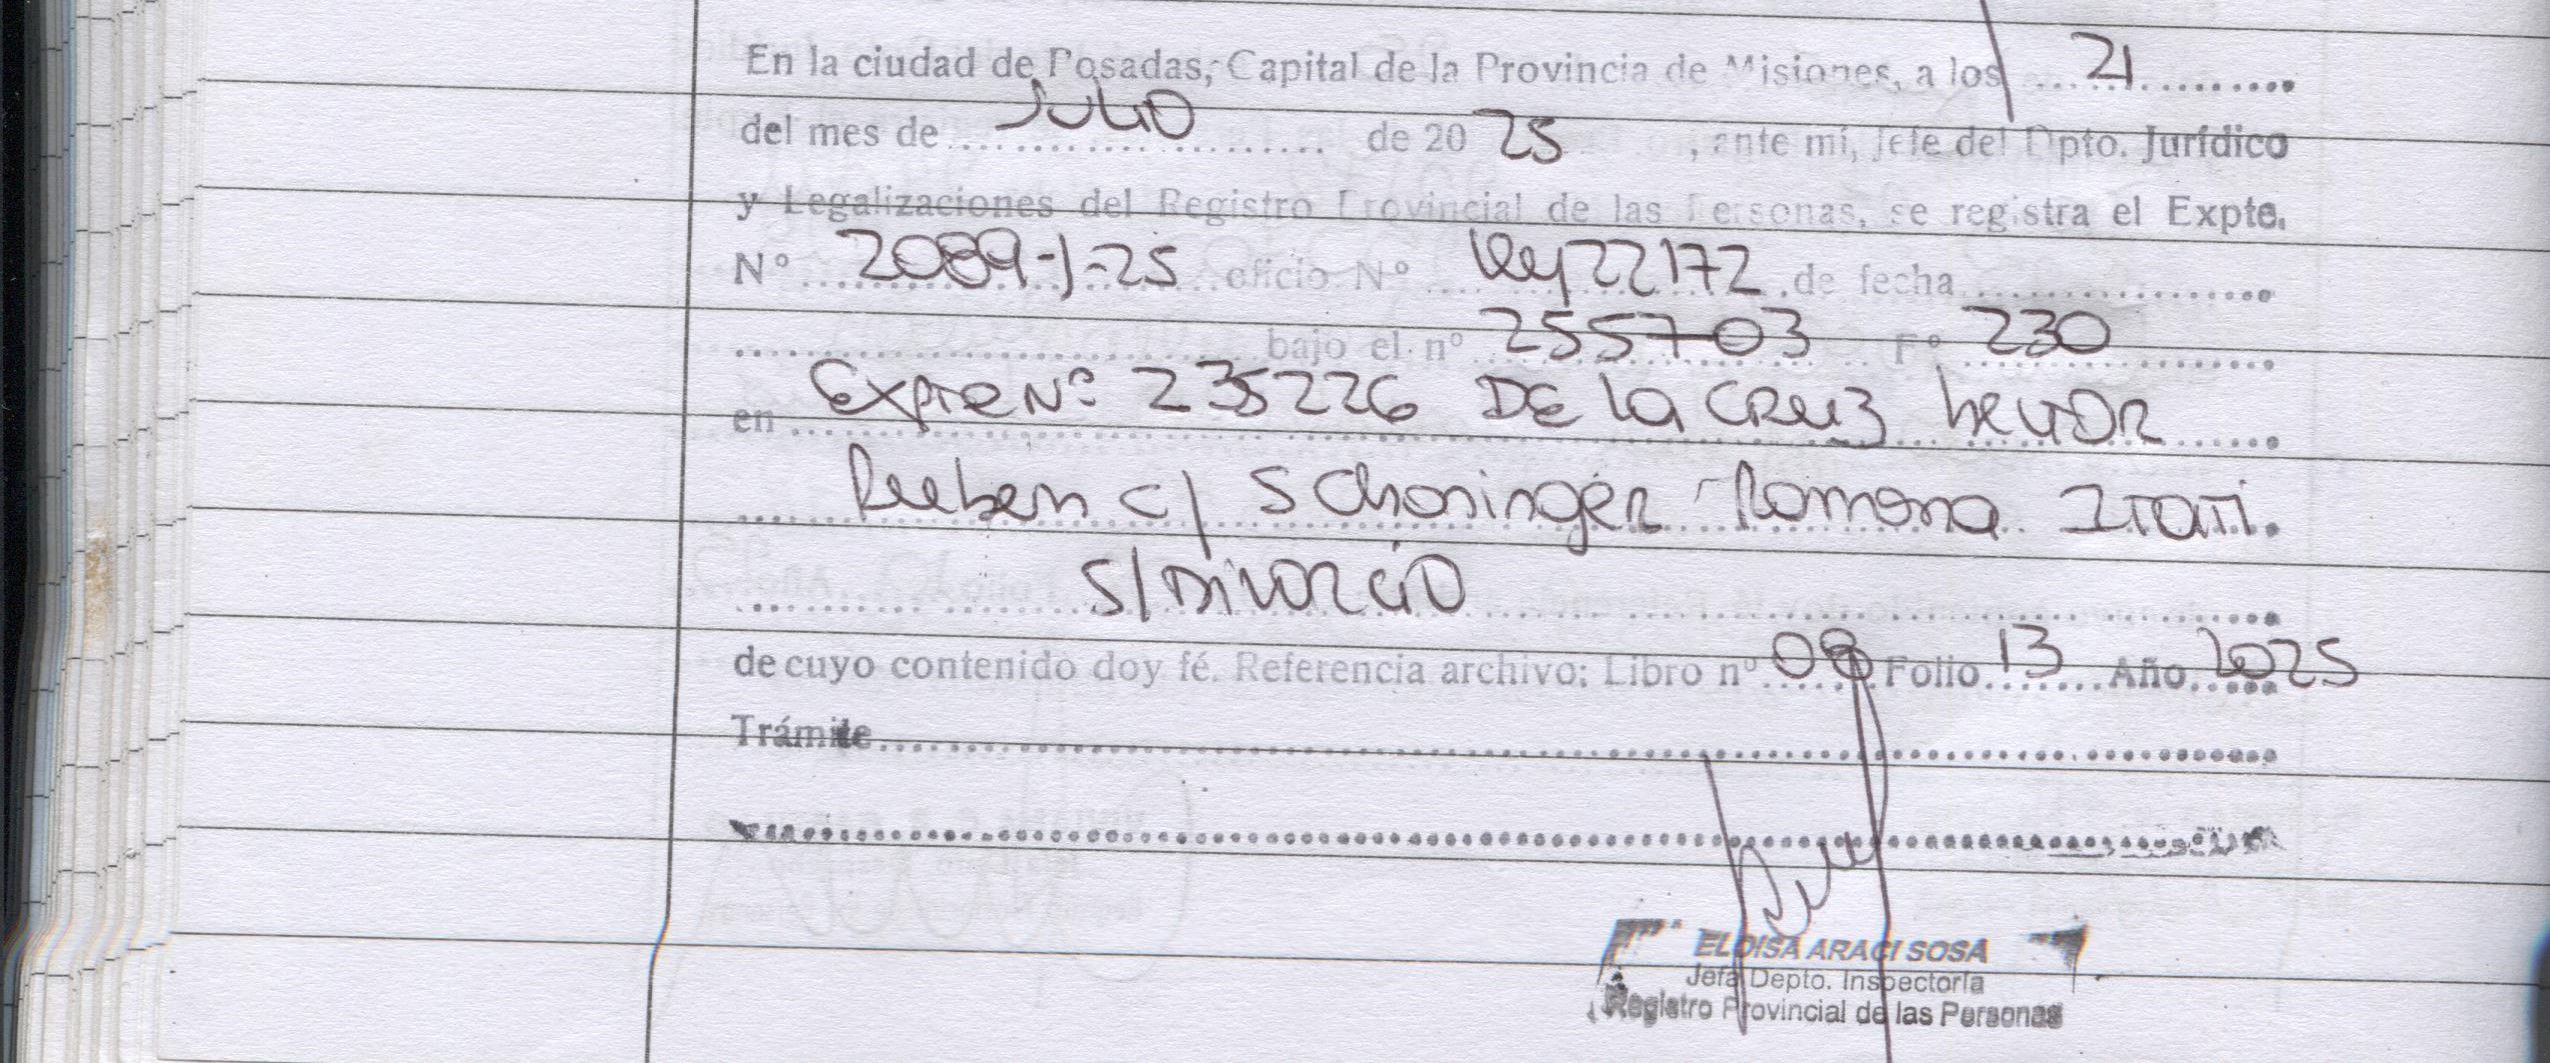 En la ciudad de Posadas, Capital de la Provincia de Misiones, a los 21
del mes de Julio de 20 25, ante mí, Jefe del Dpto. Jurídico
y Legalizaciones del Registro Provincial de las Personas, se registra el Expte.
N° 2089-J-25 oficio N° Ley 22172 de fecha
bajo el nº 255703 F° 230
en Expte Nº 235226 DE la CRUZ hector
Ruben c/ Schoninger Ramona Itati.
S/ DIVORCIO
de cuyo contenido doy fé. Referencia archivo: Libro nº 08 Folio 13 Año 2025
Trámite
ELOISA ARACI SOSA
Jefa Depto. Inspectoría
Registro Provincial de las Personas